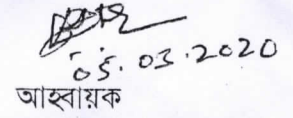 05.03.2020
আহবায়ক